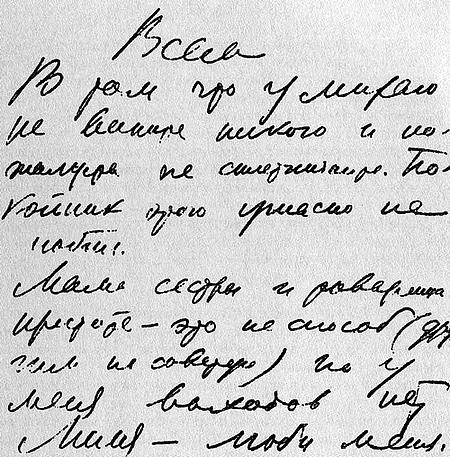 Всем
В том что умираю
не вините никого и по-
жалуйста не сплетничайте. По-
койник этого ужасно не
любил.
Мама сестры и товарищи
простите — это не способ (дру
гим не советую) но у
меня выходов нет
Лиля — люби меня.